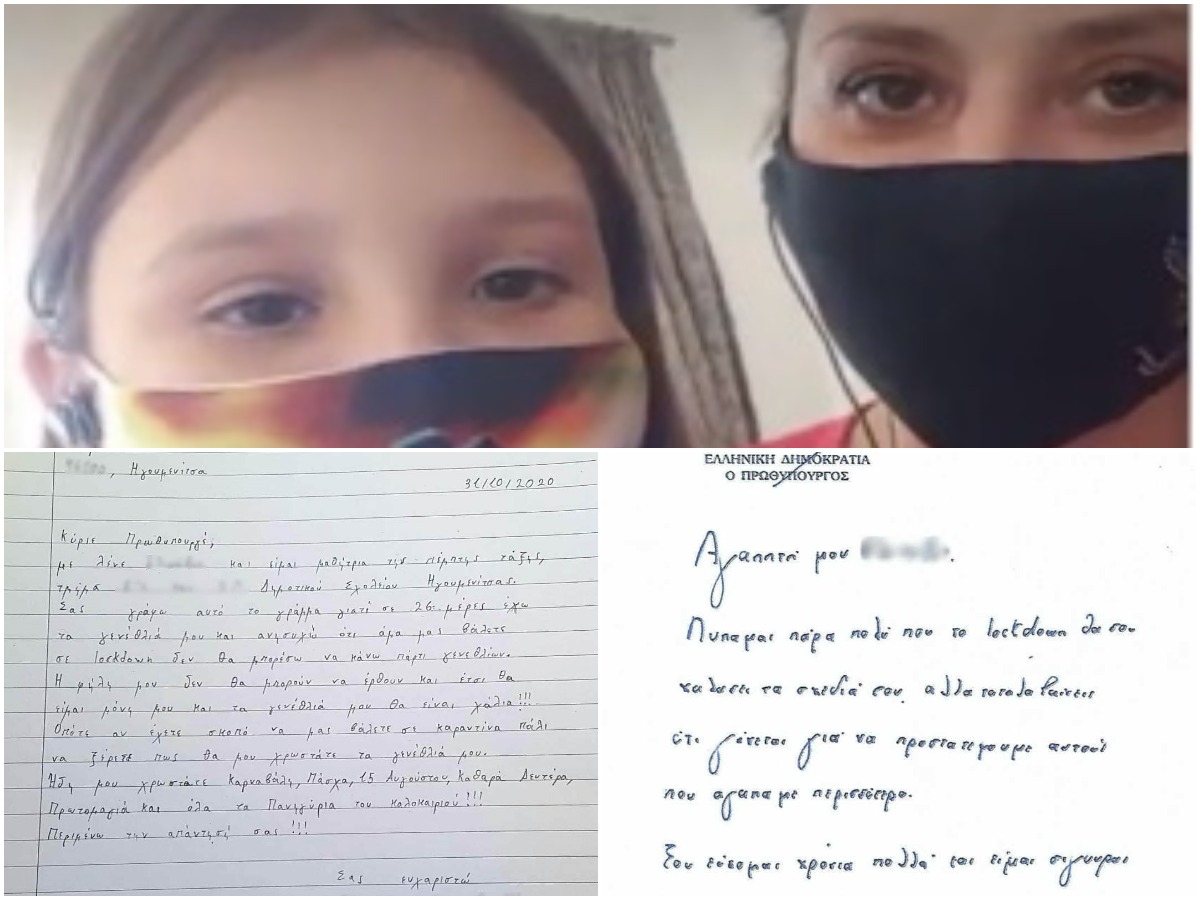 , Ηγουμενίτσα
31/10/2020
Κύριε Πρωθυπουργέ,
με λένε και είμαι μαθήτρια της πέμπτης τάξης,
τμήμα Δημοτικού Σχολείου Ηγουμενίτσας.
Σας γράφω αυτό το γράμμα γιατί σε 26 μέρες έχω
τα γενέθλιά μου και ανησυχώ ότι άμα μας βάλετε
σε lockdown δεν θα μπορέσω να κάνω πάρτι γενεθλίων.
Η φίλη μου δεν θα μπορούν να έρθουν και έτσι θα
είμαι μόνη μου και τα γενέθλιά μου θα είναι χάλια!!!
Οπότε αν έχετε σκοπό να μας βάλετε σε καραντίνα πάλι
να ξέρετε πως θα μου χρωστάτε τα γενέθλιά μου.
Ήδη μου χρωστάτε Καρναβάλι, Πάσχα, 15 Αυγούστου, Καθαρά Δευτέρα,
Πρωτομαγιά και όλα τα Πανηγύρια του καλοκαιριού!!!
Περιμένω την απάντησή σας!!!
Σας ευχαριστώ
ΕΛΛΗΝΙΚΗ ΔΗΜΟΚΡΑΤΙΑ
Ο ΠΡΩΘΥΠΟΥΡΓΟΣ
Αγαπητή μου .
Λυπαμαι πάρα πολύ που το lockdown θα σου
χαλασει τα σχεδιά σου, αλλα καταλαβαίνεις
ότι γίνεται για να προστατεψουμε αυτούς
που αγαπαμε περισσότερο.
Σου ευχομαι χρόνια πολλά και είμαι σιγουρος